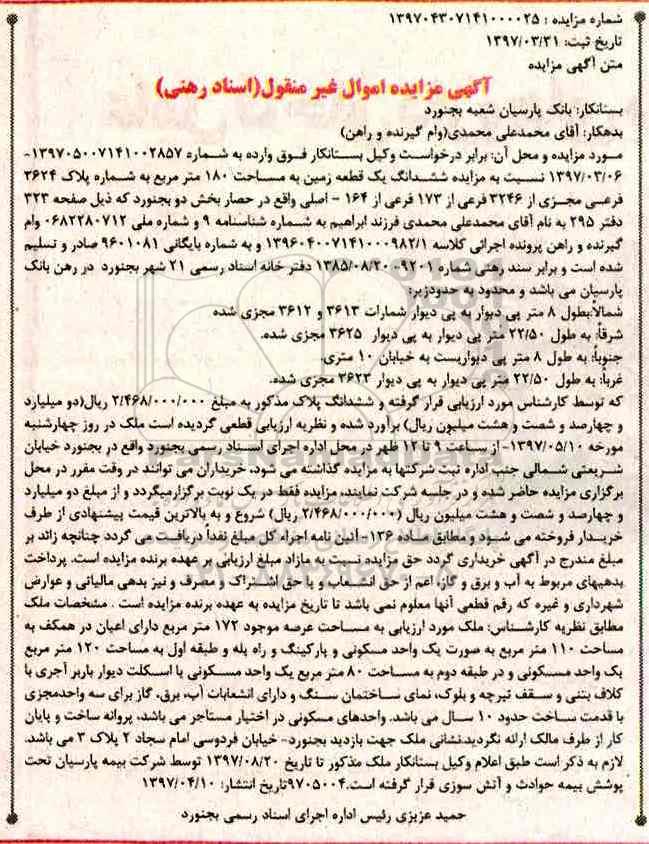 شماره مزایده : ۱۳۹۷۰۴۳۰۷۱۴۱۰۰۰۰۲۵
تاریخ ثبت: ۱۳۹۷/۰۳/۳۱
متن آگهی مزایده
آگهی مزایده اموال غیر منقول(اسناد رهنی)
بستانکار: بانک پارسیان شعبه بجنورد
بدهکار: آقای محمدعلی محمدی(وام گیرنده و راهن)
مـورد مزایده و محل آن: برابر درخواسـت وکیل بسـتانکار فـوق وارده به شماره ۱۳۹۷۰۵۰۰۷۱۴۱۰۰۲۸۵۷-
۱۳۹۷/۰۳/۰۶ نسبت به مزایده ششدانگ یک قطعه زمین به مساحت ۱۸۰ متر مربع به شماره پلاک ۳۶۲۴
فرعـی مجـزی از ۳۲۴۶ فرعی از ۱۷۳ فرعی از ۱۶۴ - اصلی واقع در حصار بخش دو بجنورد که ذیل صفحه ۳۲۳
دفتر ۲۹۵ به نام آقای محمدعلی محمدی فرزند ابراهیم به شماره شناسنامه ۹ و شماره ملی ۰۶۸۲۲۸۰۷۱۲ وام
گیرنده و راهن پرونده اجرائی کلاسه ۱۳۹۶۰۴۰۰۷۱۴۱۰۰۰۹۸۲/۱ و به شماره بایگانی ۹۶۰۱۰۸۱ صادر و تسلیم
شده است و برابر سند رهنی شماره ۹۲۰۱-۱۳۸۵/۰۸/۲۰ دفتر خانه اسناد رسمی ۲۱ شهر بجنورد در رهن بانک
پارسیان می باشد و محدود به حدودزیر:
شمالاً:بطول ۸ متر پی دیوار به پی دیوار شمارات ۳۶۱۳ و ۳۶۱۲ مجزی شده
شرقاً: به طول ۲۲/۵۰ متر پی دیوار به پی دیوار ۳۶۲۵ مجزی شده.
جنوباً: به طول ۸ متر پی دیواریست به خیابان ۱۰ متری.
غرباً: به طول ۲۲/۵۰ متر پی دیوار به پی دیوار ۳۶۲۳ مجزی شده.
که توسط کارشناس مورد ارزیابی قرار گرفته و ششدانگ پلاک مذکور به مبلغ ۲/۴۶۸/۰۰۰/۰۰۰ ریال(دو میلیارد
و چهارصد و شصت و هشت میلیون ریال) برآورد شده و نظریه ارزیابی قطعی گردیده است ملک در روز چهارشنبه
مورخه ۱۳۹۷/۰۵/۱۰- از ساعت ۹ تا ۱۲ ظهر در محل اداره اجرای اسناد رسمی بجنورد واقع در بجنورد خیابان
شریعتی شمالی جنب اداره ثبت شرکتها به مزایده گذاشته می شود، خریداران می توانند در وقت مقرر در محل
برگزاری مزایده حاضر شده و در جلسه شرکت نمایند، مزایده فقط در یک نوبت برگزارمیگردد و از مبلغ دو میلیارد
و چهارصد و شصت و هشت میلیون ریال (۲/۴۶۸/۰۰۰/۰۰۰ ریال) شروع و به بالاترین قیمت پیشنهادی از طرف
خریـدار فروخته می شـود و مطابق مـاده ۱۳۶- آئین نامه اجراء کل مبلغ نقداً دریافـت می گردد چنانچه زائد بر
مبلغ مندرج در آگهی خریداری گردد حق مزایده نسبت به مازاد مبلغ ارزیابی بر عهده برنده مزایده است. پرداخت
بدهیهای مربوط به آب و برق و گاز، اعم از حق انشـعاب و یا حق اشـتراک و مصرف و نیز بدهی مالیاتی و عوارض
شهرداری و غیره که رقم قطعی آنها معلوم نمی باشد تا تاریخ مزایده به عهده برنده مزایده است . مشخصات ملک
مطابق نظریه کارشناس: ملک مورد ارزیابی به مساحت عرصه موجود ۱۷۲ متر مربع دارای اعیان در همکف به
مساحت ۱۱۰ متر مربع به صورت یک واحد مسکونی و پارکینگ و راه پله و طبقه اول به مساحت ۱۲۰ متر مربع
یک واحد مسـکونی و در طبقه دوم به مساحت ۸۰ متر مربع یک واحد مسکونی با اسکلت دیوار باربر آجری با
کلاف بتنی و سـقف تیرچه و بلوک، نمای ساختمان سـنگ و دارای انشعابات آب، برق، گاز برای سه واحدمجزی
با قدمت ساخت حدود ۱۰ سال می باشد. واحدهای مسکونی در اختیار مستاجر می باشد، پروانه ساخت و پایان
کار از طرف مالک ارائه نگردید.نشانی ملک جهت بازدید بجنورد- خیابان فردوسی امام سجاد ۲ پلاک ۳ می باشد.
لازم به ذکر است طبق اعلام وکیل بستانکار ملک مذکور تا تاریخ ۱۳۹۷/۰۸/۲۰ توسط شرکت بیمه پارسیان تحت
پوشش بیمه حوادث و آتش سوزی قرار گرفته است.۹۷۰۵۰۰۴تاریخ انتشار: ۱۳۹۷/۰۴/۱۰
حمید عزیزی رئیس اداره اجرای اسناد رسمی بجنورد